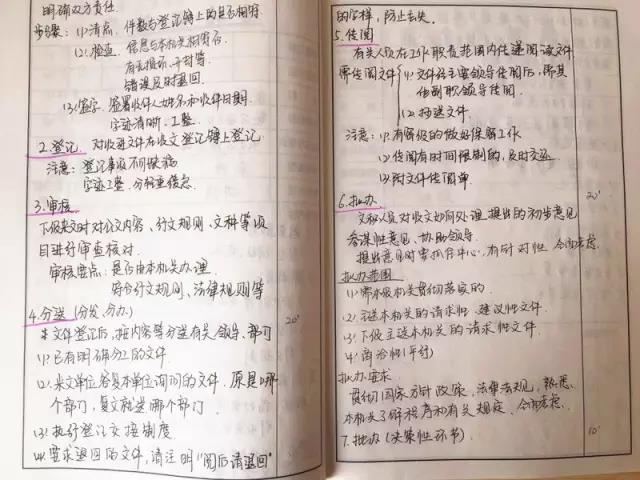 明确双方责任.
步骤: (1)清点. 件数与登记簿上的是否相符
(2)检查. 信息与本机关相符否
有无损坏、开封等
错误及时退回
(3)签字. 签署收件人姓名和收件日期.
字迹清晰、工整.
2.登记. 对收进文件在收文登记簿上登记
注意: 登记事项不可
字迹工整.
3.审核
下级来文时对公文内容、行文规则、文种等项
目进行审查核对.
审核要点: 是否由本机关办理.
符合行文规则、法律规则等
4.分送 (分发、分办)
来文件登记后,按内容等分送有关领导、部门 20'
(1)已有明确分工的文件
(2)来文单位答复本单位询问的文件. 原是哪
个部门,复文就送哪个部门
(3)执行登记交接制度.
(4)要求退回的文件,请注明"阅后请退回"
的字样,防止丢失.
5.传阅
有关人员在工作职责范围内传递阅读文件
需传阅文件 (1)文件经主要领导传阅后,需其
他副职领导传阅.
(2)抄送文件.
注意: (1)有密级的做好保密工作
(2)传阅有时间限制的,及时交送
(3)附文件传阅单. 20'
6.拟办
文秘人员对收文如何处理,提出的初步意见
参谋性意见、协助领导.
提出意见时要抓住中心,有针对性,全面考虑.
拟办范围
(1)需本级机关贯彻落实的.
(2)主送本机关的请求性、建议性文件.
(3)下级主送本机关的请求性文件.
(4)商洽性(平行)
拟办要求.
贯彻国家方针政策,法律法规,熟悉、
本机关了解程序和有关规定,全面考虑.
7.批办 (决策性环节). 10'